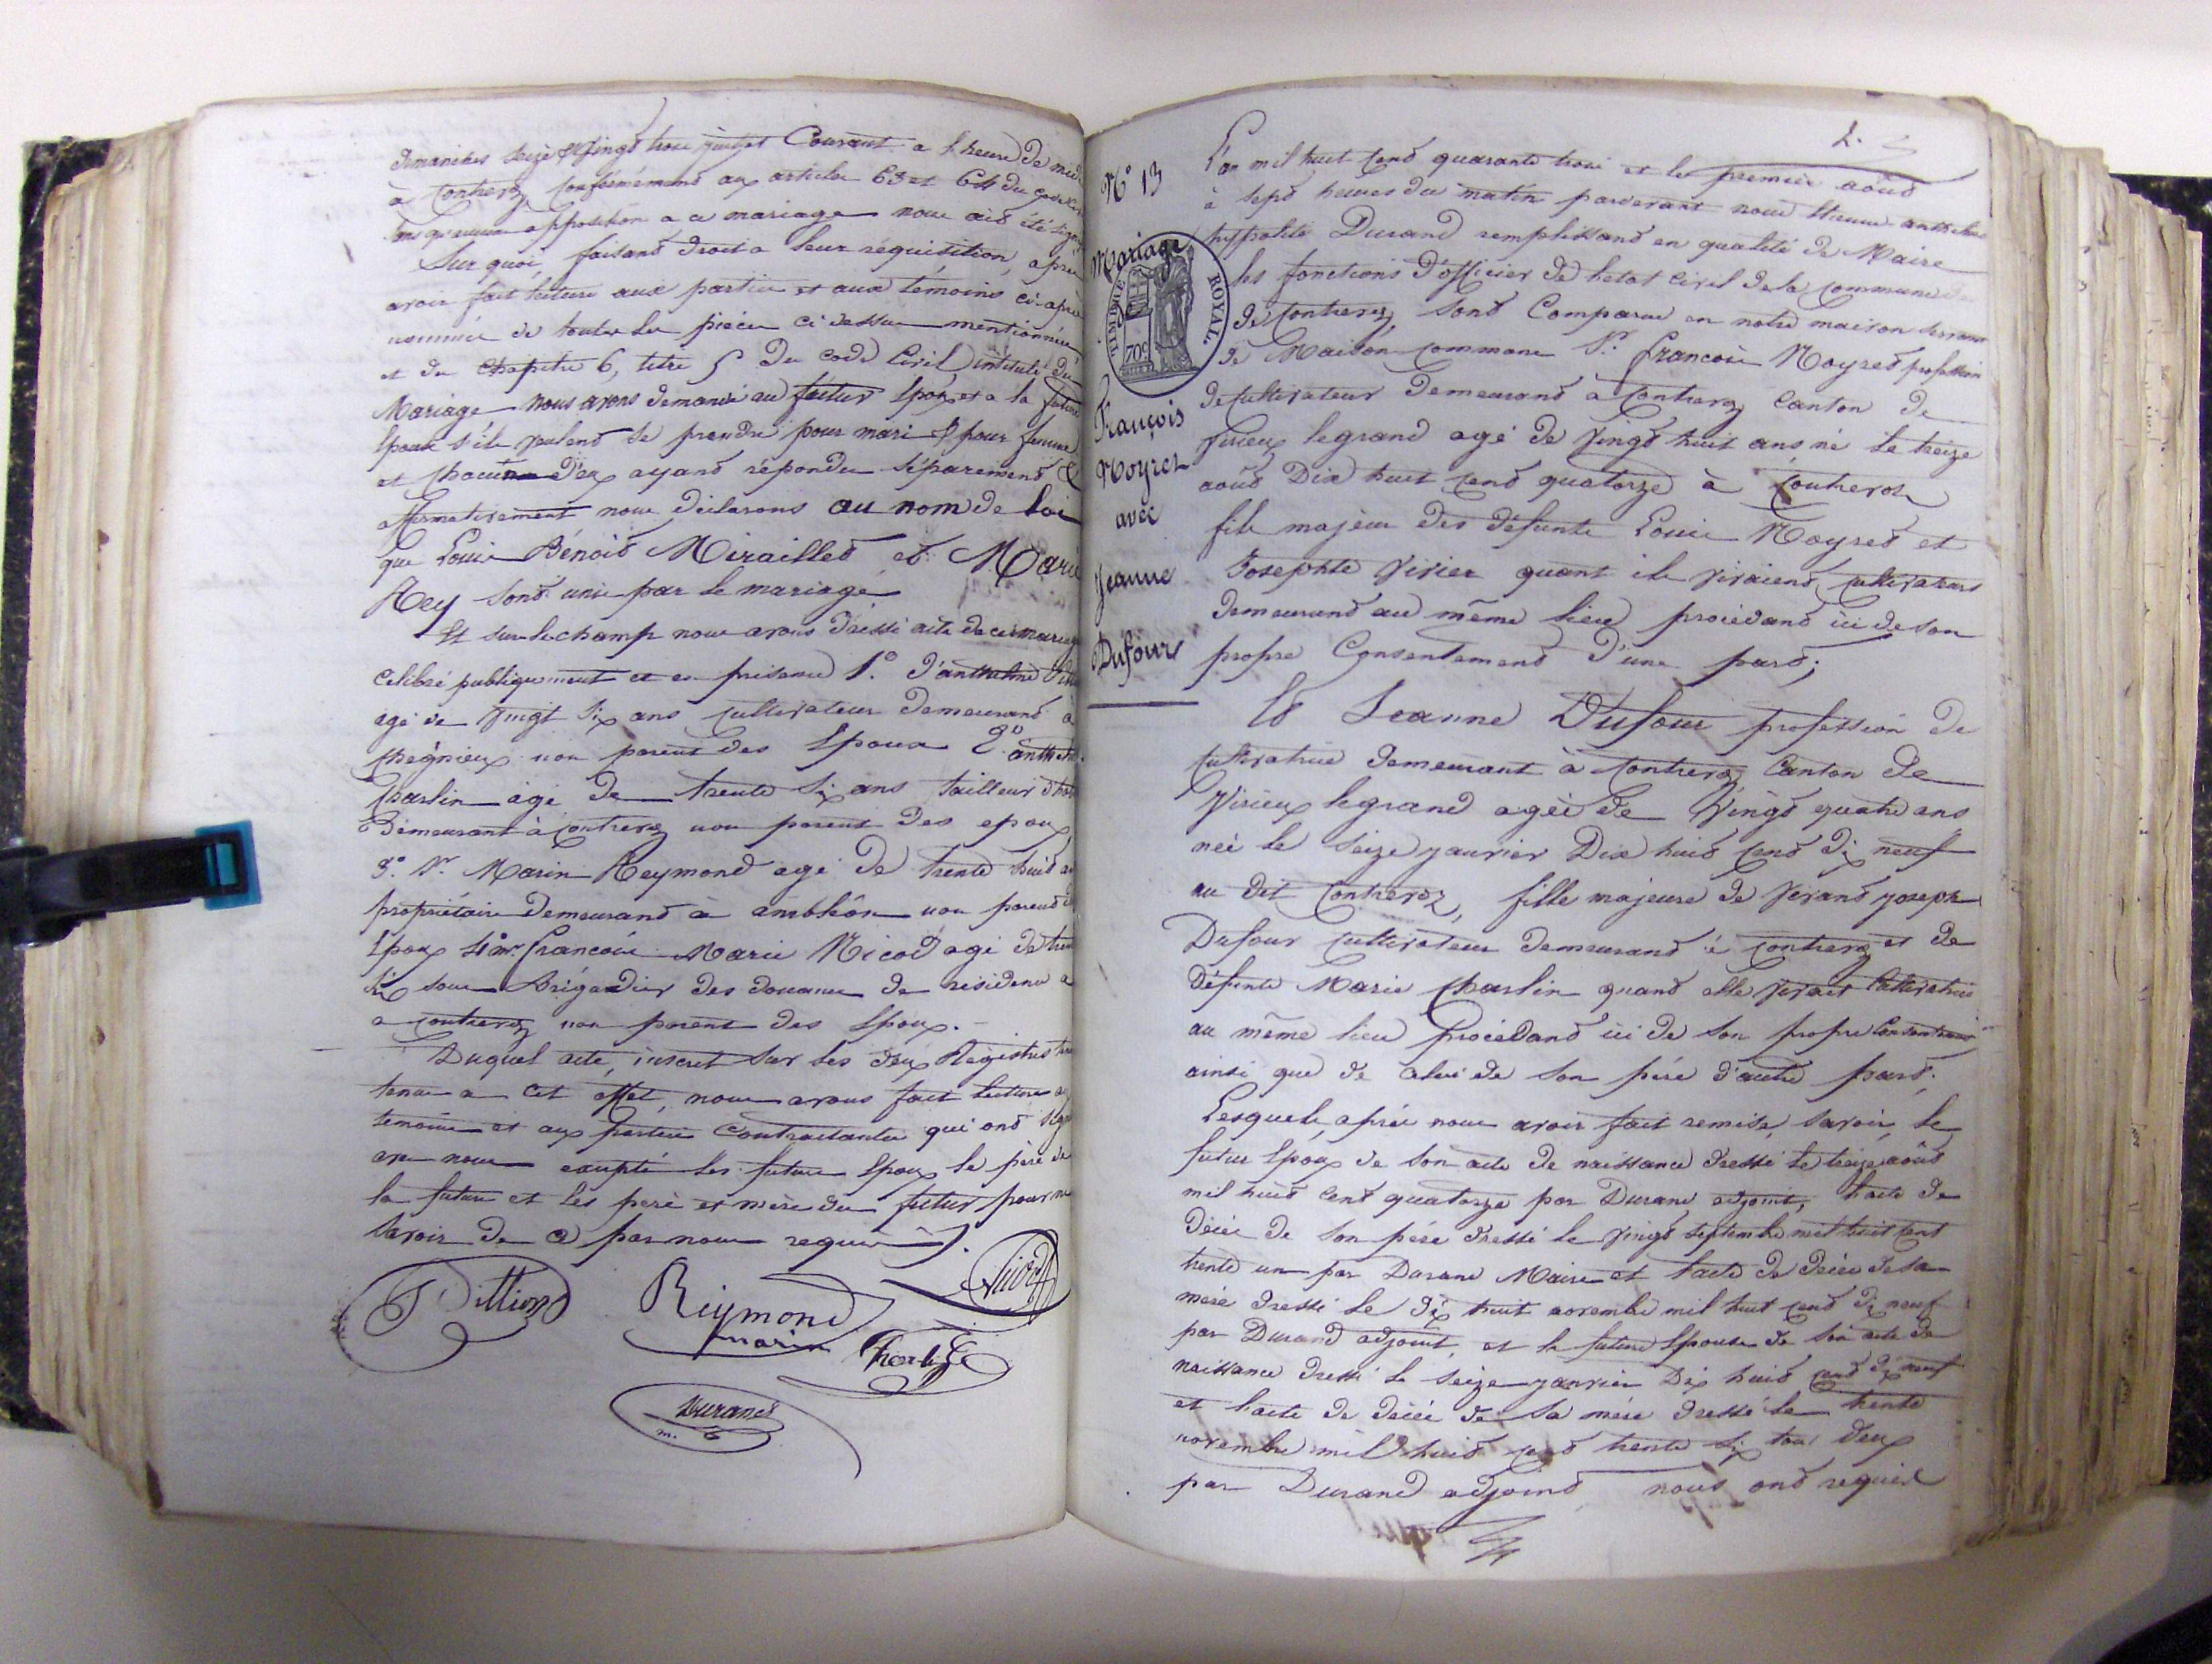 dimanches seize & vingt trois juillet Courant a l heure de midi
à Contrevoz conformément aux articles 63 et 64 du code civil
sans qu'aucune opposition a ce mariage nous ait été
Sur quoi, faisant droit a leur réquisition, après
avoir fait lecture aux parties et aux témoins ci-après
nommés de toutes les pièces ci dessus mentionnées
et du chapitre 6, titre 5 du code Civil intitulé du
Mariage nous avons demandé au futur Epoux et a la future
Epouse s'ils veulent se prendre pour mari & pour femme
et chacun d'eux ayant répondu séparément &
affirmativement nous déclarons au nom de loi
que Louis Bénoit Miraillet et Marie
Rey sont unis par le mariage
Et sur le champ nous avons dressé acte de ce mariage
Célébré publiquement et en présence 1.° d'anthelme
agé de vingt six ans cultivateur demeurant à
non parent des Epoux 2.° anthelme
Charlin agé de trente six ans tailleur
Demeurant à Contrevoz non parent des epoux
3.° Sr. Marin Reymond agé de trente huit
propriétaire demeurant à ambléon non parent
Epoux 4° mr. françois Marie Nicod agé de
six sous Brigadier des douanes de résidence a
a contrevoz non parent des Epoux.
Duquel acte, inscrit sur les deux Régistres
tenus a cet effet, nous avons fait lecture
témoins et aux parties Contractantes qui ont
avec nous excepté les futurs Epoux le père de
la future et les père et mère du futur pour
savoir de ce par nous requis
Reymond
marin
Nicod
Charlin
Durand
m.
2.
N° 13
Mariage
TIMBRE ROYAL
70c
François
Moyret
avec
Jeanne
Dufour
L'an mil huit cent quarante trois et le premier août
à sept heures du matin pardevant nous Etienne anthelme
hyppolite Durand remplissant en qualité de Maire
les fonctions d'officier de l'etat civil de la commune de
de Contrevoz sont Comparus en notre maison servant
de Maison commune Sr. françois Moyret profession
de cultivateur demeurant à Contrevoz Canton de
Virieux legrand agé de vingt huit ans né le treize
août Dix huit cent quatorze à Contrevoz
fils majeur des défunts Louis Moyret et
Josephte Virier quant ils vivaient cultivateurs
demeurant au même lieu procédant ici de son
propre Consentement d'une part;
Et Jeanne Dufour profession de
cultivatrice demeurant à Contrevoz Canton de
Virieux legrand agée de vingt quatre ans
née le seize janvier Dix huit cent dix neuf
au dit Contrevoz, fille majeure de vivant joseph
Dufour cultivateur demeurant à Contrevoz et de
défunte Marie Charlin quand elle vivait Cultivatrice
au même lieu procédant ici de son propre Consentement
ainsi que de celui de son père d'autre part.
Lesquels, après nous avoir fait remise, savoir, le
futur Epoux de son acte de naissance dressé le treize août
mil huit cent quatorze par Durand adjoint, l'acte de
décès de son père dressé le vingt septembre mil huit cent
trente un par Durand Maire et l'acte de décès de sa
mère dressé le dix huit novembre mil huit cent dix neuf
par Durand adjoint, et la future Epouse de son acte de
naissance dressé le seize janvier Dix huit cent dix neuf
et l'acte de décès de sa mère dressé le trente
novembre mil huit cent trente six tous deux
par Durand adjoint nous ont requis